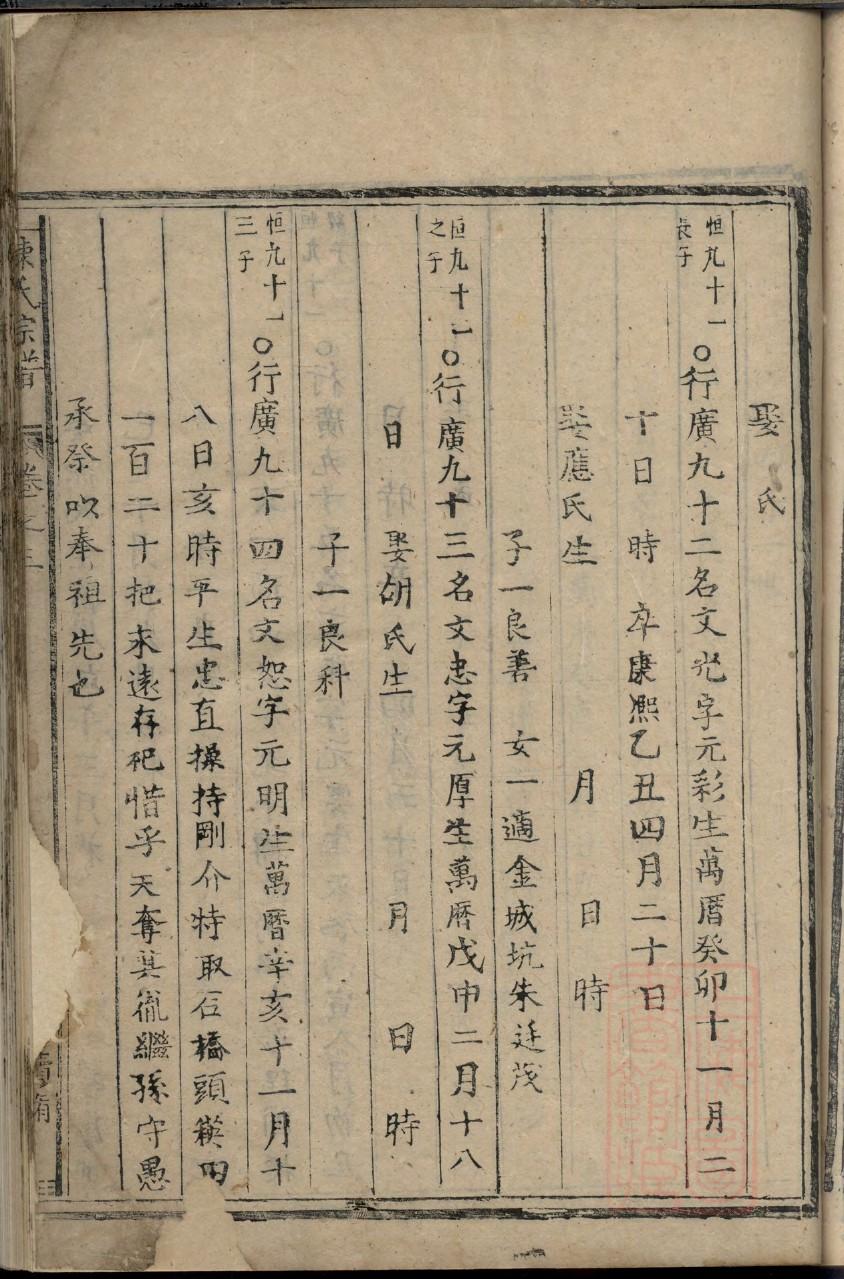 娶 氏
恒九十一長子〇行廣九十二名文光字元彩生萬曆癸卯十一月二
十日 時 卒康熙乙丑四月二十日
娶應氏生 月 日 時
子一良善 女一適金城坑朱廷茂
恒九十一之子〇行廣九十三名文忠字元厚生萬曆戊申二月十八
日 時 娶胡氏生 月 日 時
子一良科
恒九十一三子〇行廣九十四名文恕字元明生萬曆辛亥十一月十
八日亥時平生忠直操持剛介特取石橋頭 田
一百二十把永遠存祀惜乎天奪其胤繼孫守愚
承祭以奉祖先也
陳氏宗譜 卷之三